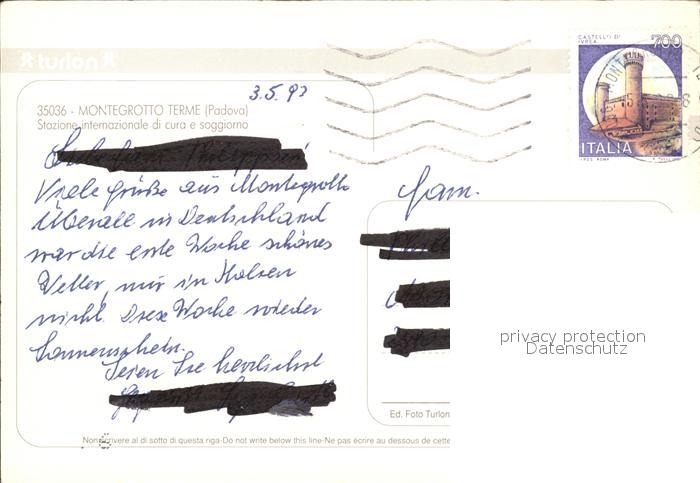 turlon
CASTELLO DI IVREA
700
ITALIA
I.P.Z.S. ROMA
3.5.93
35036 - MONTEGROTTO TERME (Padova)
Stazione internazionale di cura e soggiorno
Viele grüße aus Montegrotto
Überall in Deutschland
war die erste Woche schönes
Wetter, nur in Italien
nicht. Diese Woche wieder
Sonnenschein.
Seien Sie herzlichst
Fam.
privacy protection
Datenschutz
Ed. Foto Turlon
Non scrivere al di sotto di questa riga-Do not write below this line-Ne pas écrire au dessous de cette